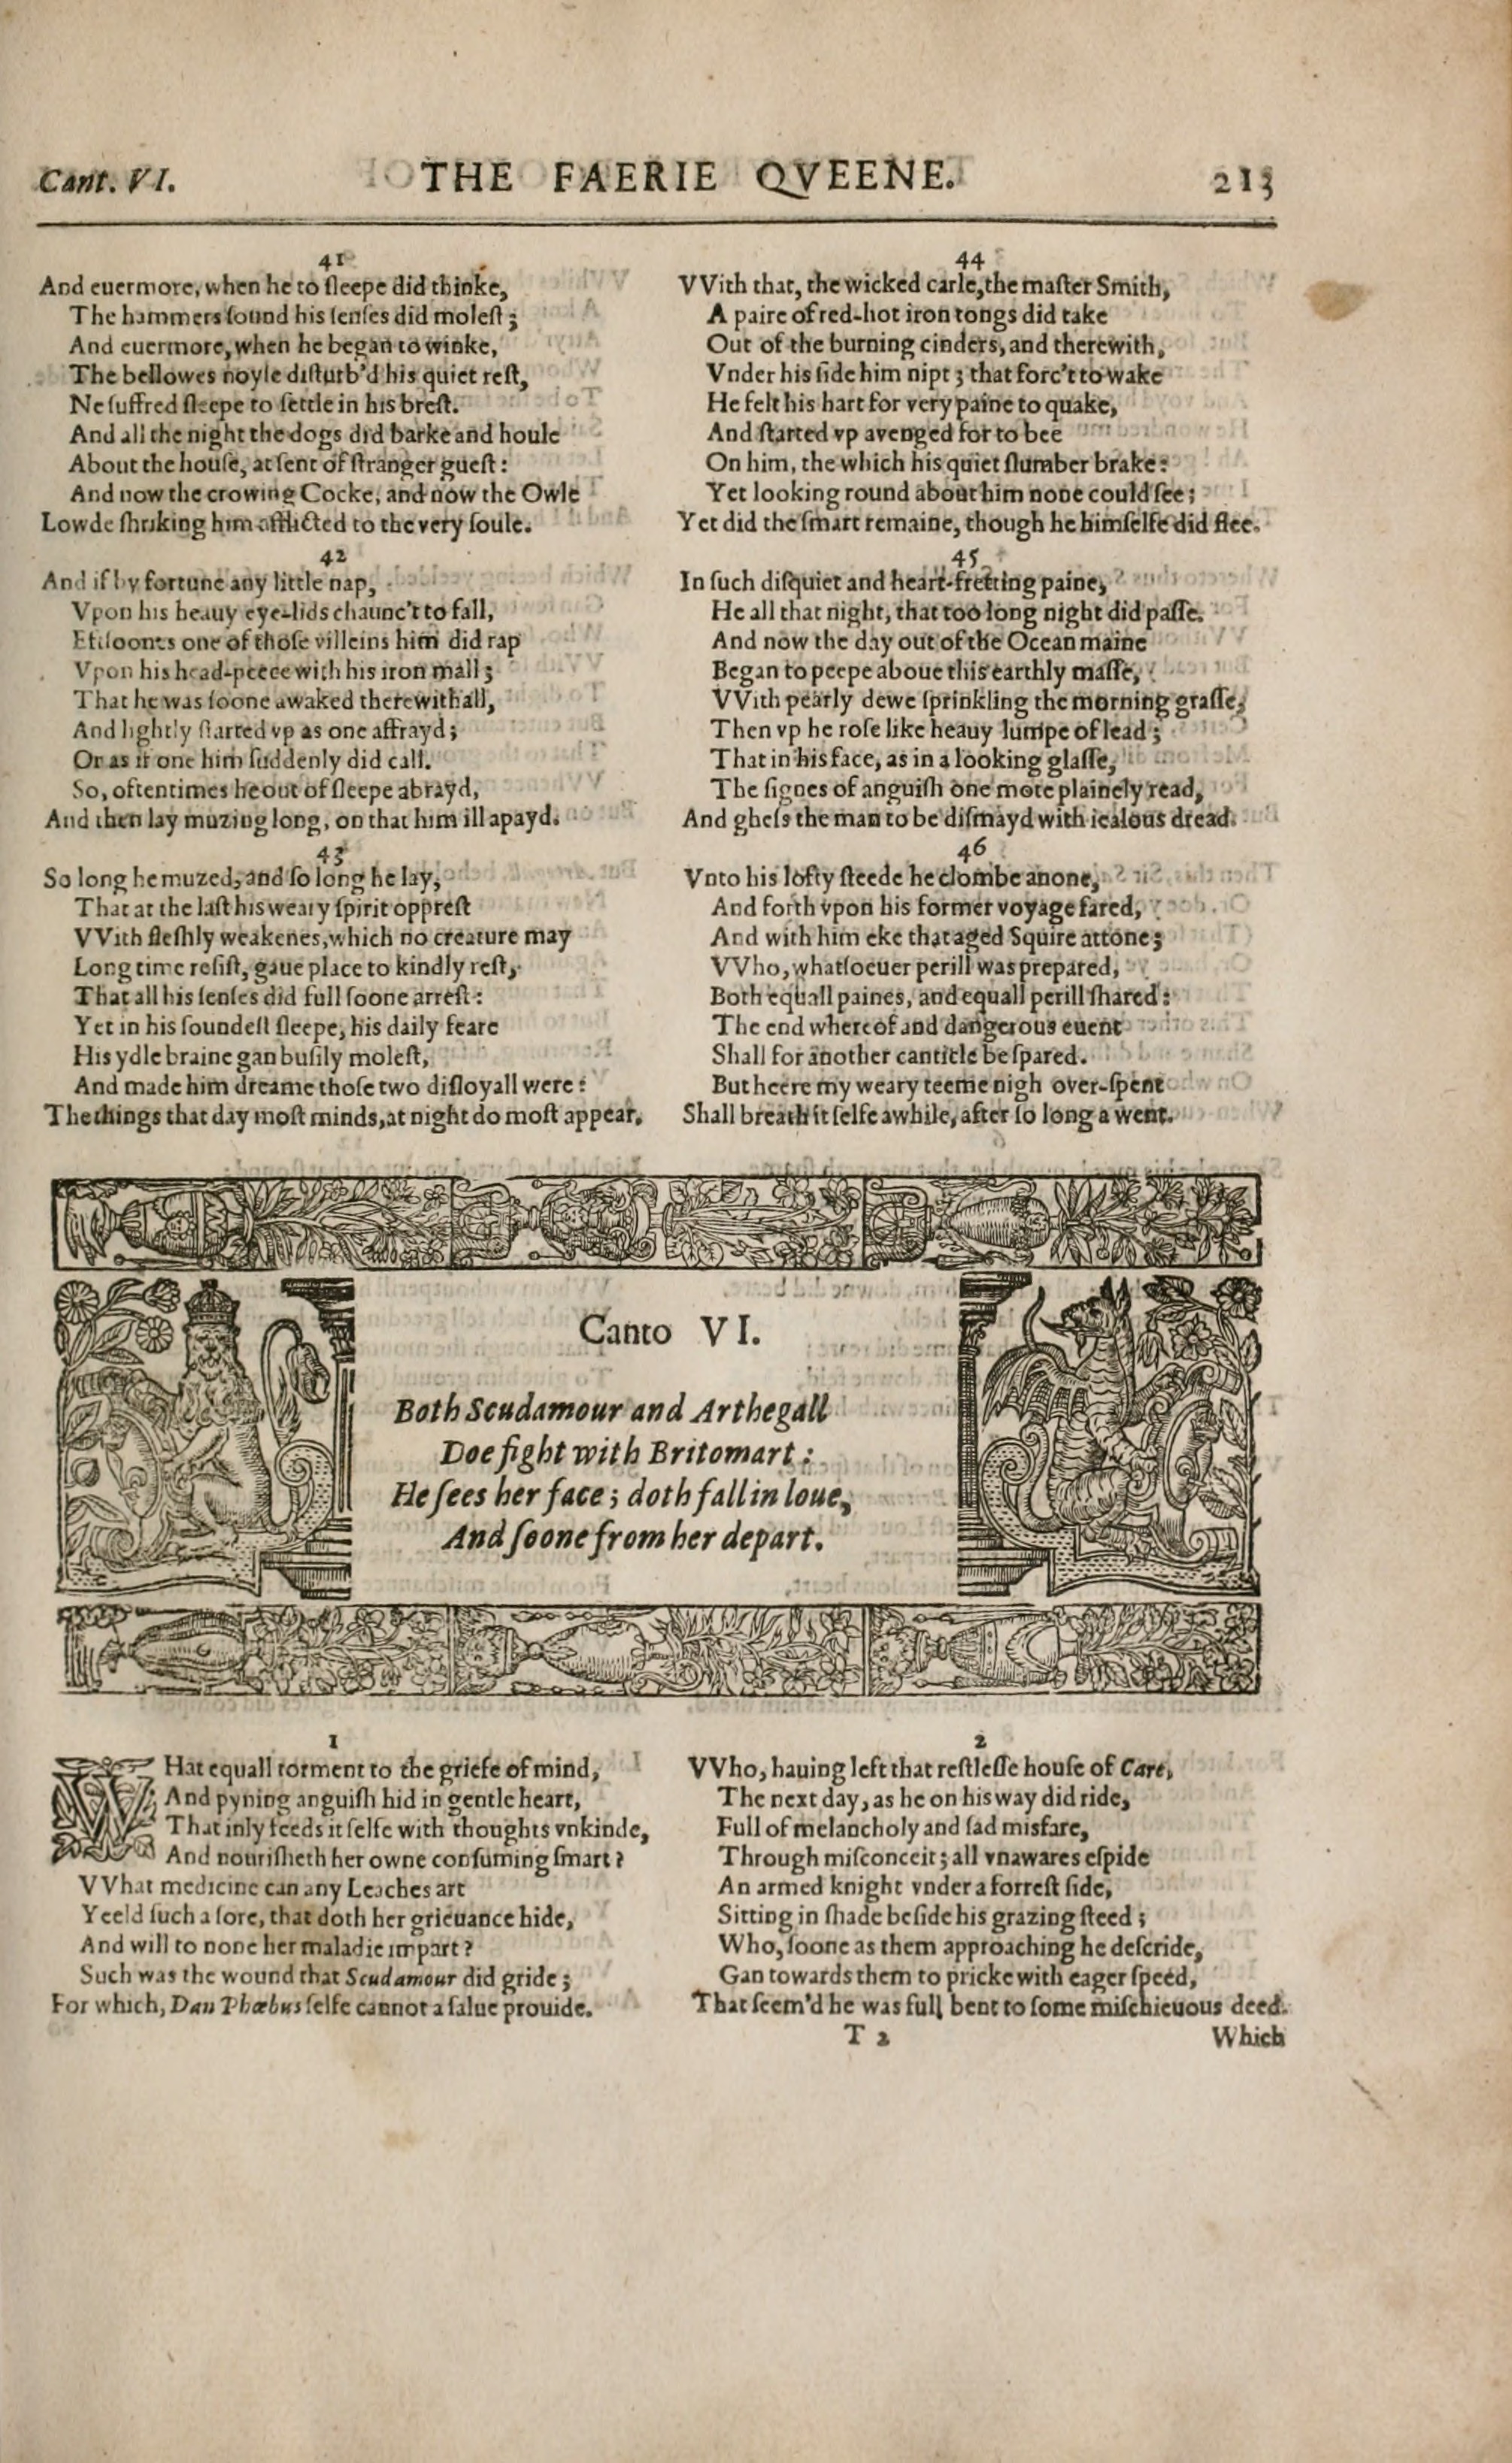 Cant. VI. THE FAERIE QVEENE. 213
41
And euermore, when he to ſleepe did thinke,
The hammers ſound his ſenſes did moleſt;
And euermore, when he began to winke,
The bellowes noyſe diſturb'd his quiet reſt,
Ne ſuffred ſleepe to ſettle in his breſt.
And all the night the dogs did barke and houle
About the houſe, at ſent of ſtranger gueſt:
And now the crowing Cocke, and now the Owle
Lowde ſhriking him afflicted to the very ſoule.
42
And if by fortune any little nap,
Vpon his heauy eye-lids chaunc't to fall,
Eftſoones one of thoſe villeins him did rap
Vpon his head-peece with his iron mall;
That he was ſoone awaked therewithall,
And lightly ſtarted vp as one affrayd;
Or as if one him ſuddenly did call.
So, oftentimes he out of ſleepe abrayd,
And then lay muzing long, on that him ill apayd.
43
So long he muzed, and ſo long he lay,
That at the laſt his weary ſpirit oppreſt
VVith fleſhly weakenes, which no creature may
Long time reſiſt, gaue place to kindly reſt,
That all his ſenſes did full ſoone arreſt:
Yet in his ſoundeſt ſleepe, his daily feare
His ydle braine gan buſily moleſt,
And made him dreame thoſe two diſloyall were:
The things that day moſt minds, at night do moſt appear.
44
VVith that, the wicked carle, the maſter Smith,
A paire of red-hot iron tongs did take
Out of the burning cinders, and therewith,
Vnder his ſide him nipt; that forc't to wake
He felt his hart for very paine to quake,
And ſtarted vp avenged for to bee
On him, the which his quiet ſlumber brake:
Yet looking round about him none could ſee;
Yet did the ſmart remaine, though he himſelfe did flee.
45
In ſuch diſquiet and heart-fretting paine,
He all that night, that too long night did paſſe.
And now the day out of the Ocean maine
Began to peepe aboue this earthly maſſe,
VVith pearly dewe ſprinkling the morning graſſe,
Then vp he roſe like heauy lumpe of lead;
That in his face, as in a looking glaſſe,
The ſignes of anguiſh one mote plainely read,
And gheſs the man to be diſmayd with iealous dread.
46
Vnto his lofty ſteede he clombe anone,
And forth vpon his former voyage fared,
And with him eke that aged Squire attone;
VVho, whatſoeuer perill was prepared,
Both equall paines, and equall perill ſhared:
The end whereof and dangerous euent
Shall for another canticle be ſpared.
But heere my weary teeme nigh over-ſpent
Shall breath it ſelfe awhile, after ſo long a went.
Canto VI.
Both Scudamour and Arthegall
Doe fight with Britomart:
He ſees her face; doth fall in loue,
And ſoone from her depart.
1
WHat equall torment to the griefe of mind,
And pyning anguiſh hid in gentle heart,
That inly feeds it ſelfe with thoughts vnkinde,
And nouriſheth her owne conſuming ſmart?
VVhat medicine can any Leaches art
Yeeld ſuch a ſore, that doth her grieuance hide,
And will to none her maladie impart?
Such was the wound that Scudamour did gride;
For which, Dan Phœbus ſelfe cannot a ſalue prouide.
2
VVho, hauing left that reſtleſſe houſe of Care,
The next day, as he on his way did ride,
Full of melancholy and ſad misfare,
Through miſconceit; all vnawares eſpide
An armed knight vnder a forreſt ſide,
Sitting in ſhade beſide his grazing ſteed;
Who, ſoone as them approaching he deſcride,
Gan towards them to pricke with eager ſpeed,
That ſeem'd he was full bent to ſome miſchieuous deed.
T 2 Which